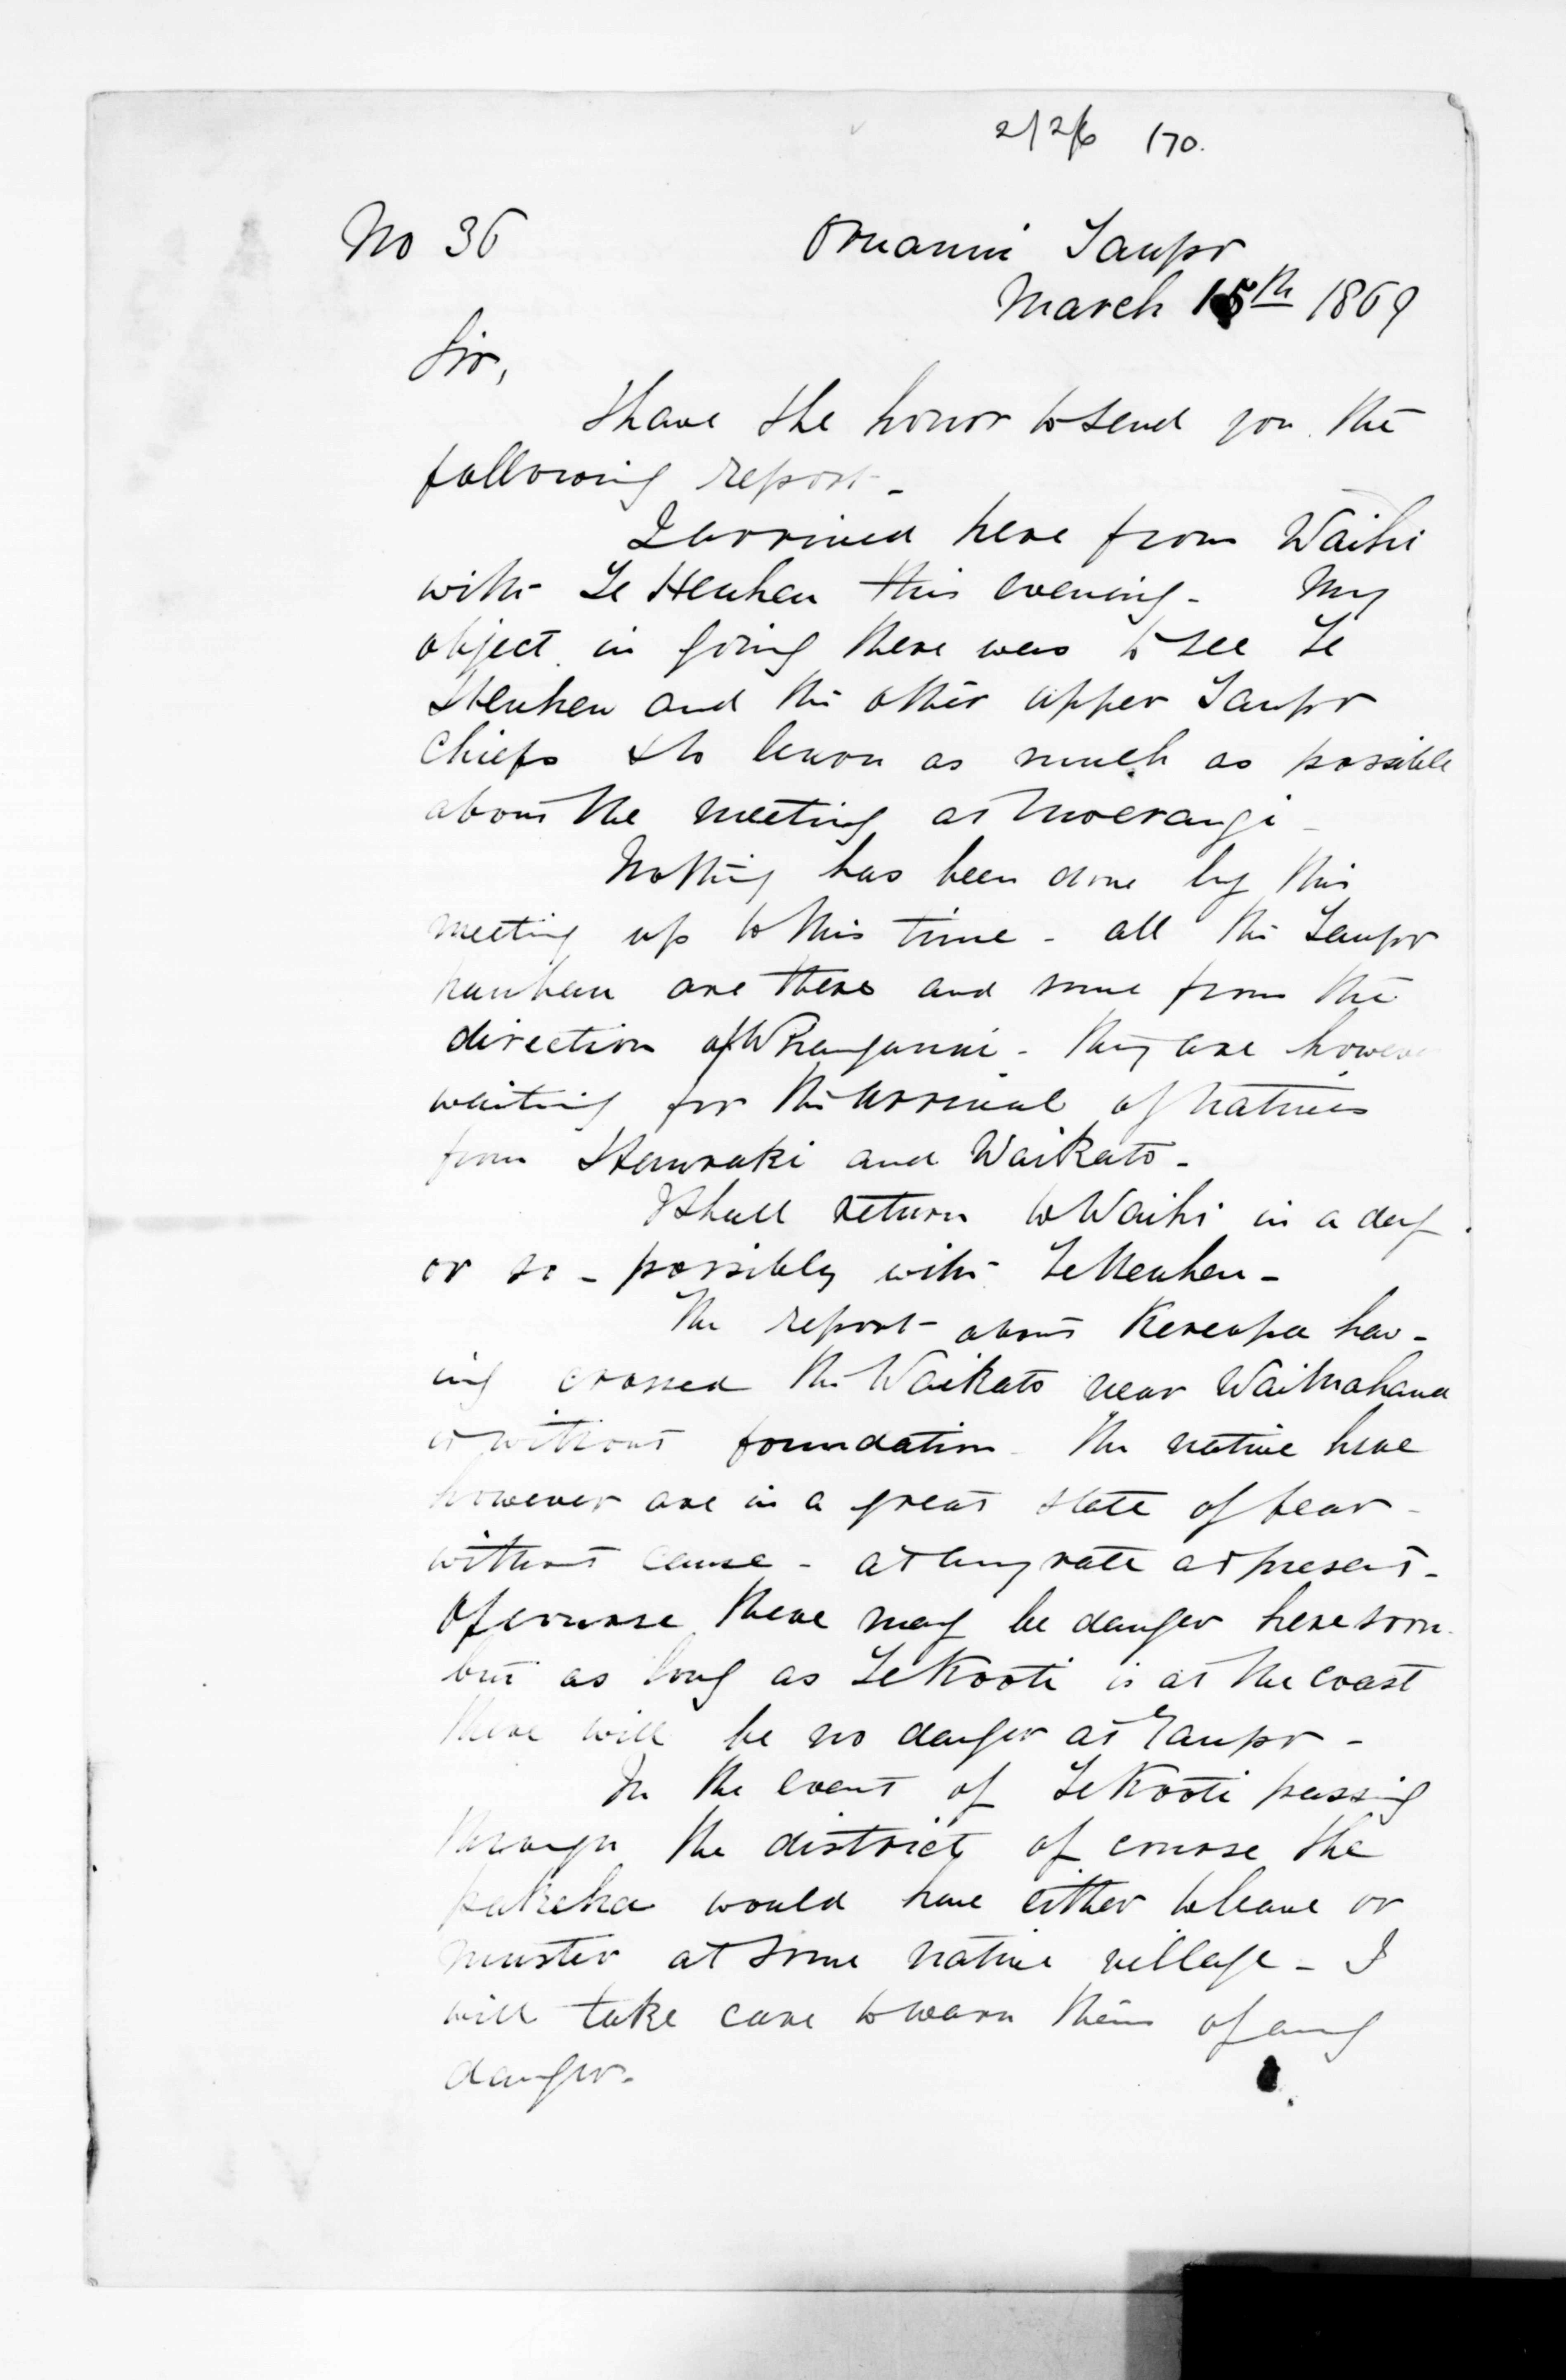 2/2/6 170.
No 36 Oruanui Taupo
March 15th 1869
Sir,
I have the honor to send you the
following report -
I arrived here from Waihi
with Te Heuheu this evening - My
object in going there was to see Te
Heuheu and the other upper Taupo
Chiefs & to learn as much as possible
about the meeting at Moerangi -
Nothing has been done by this
meeting up to this time - all the Taupo
hauhau are there and some from the
direction of Whanganui - they are however
waiting for the arrival of natives
from Hauraki and Waikato -
I shall return to Waihi in a day
or so - possibly with Te Heuheu -
The report about Kereopa hav-
ing crossed the Waikato near Waimahana
is without foundation - The native here
however are in a great state of fear -
without cause - at any rate at present -
Of course there may be danger here soon
but as long as Te Kooti is at the coast
there will be no danger at Taupo -
In the event of Te Kooti passing
through the district of course the
pakeha would have either to leave or
muster at some native village - I
will take care to warn them of any
danger.